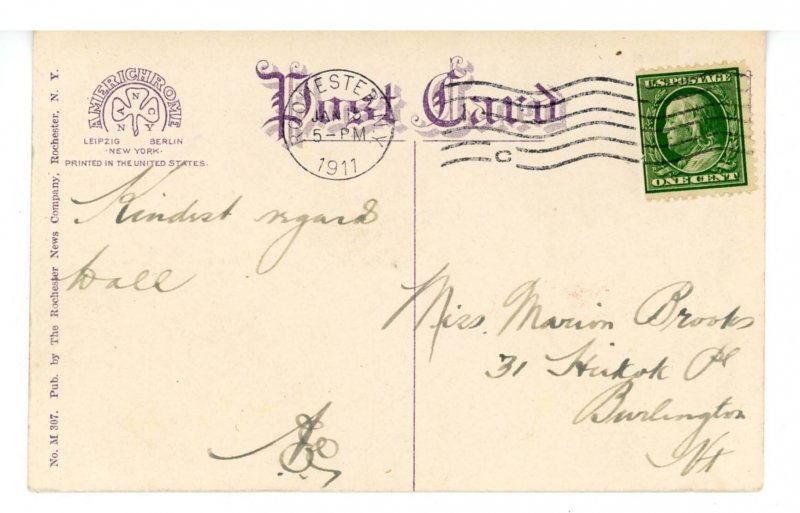 AMERICHROME
A N C N Y
LEIPZIG BERLIN
·NEW YORK·
PRINTED IN THE UNITED STATES.
Post Card
ROCHESTER
JAN
5-PM
1911
C
U.S. POSTAGE
ONE CENT
No. M 307. Pub. by The Rochester News Company, Rochester, N. Y.
Kindest regards
to all
Miss. Marion Brooks
31 Hickok Pl
Burlington
Vt